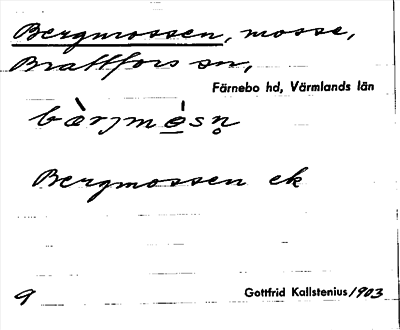 Bergmossen, mosse,
Brattfors sn,
Färnebo hd, Värmlands län
bàrjmósn̥
Bergmossen ek
9 Gottfrid Kallstenius 1903